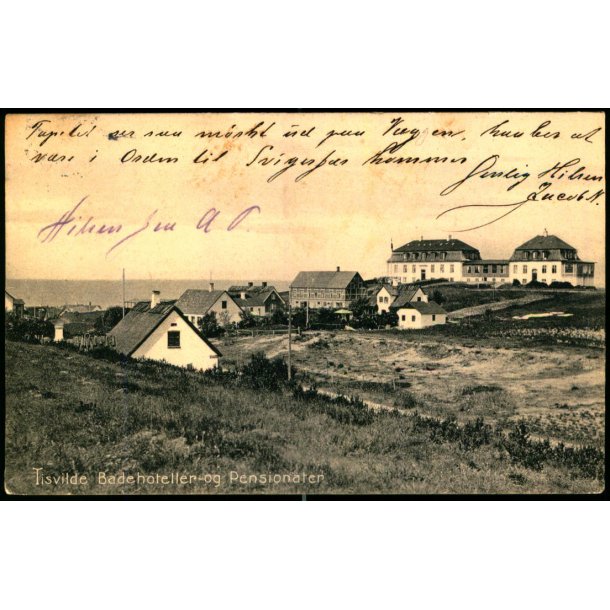 Tapetet ser saa mörkt ud paa Væggen, haaber at
være i Orden til Svigerfar kommer
Venlig Hilsen
Jacob N.
Hilsen fra A P
Tisvilde Badehoteller og Pensionater